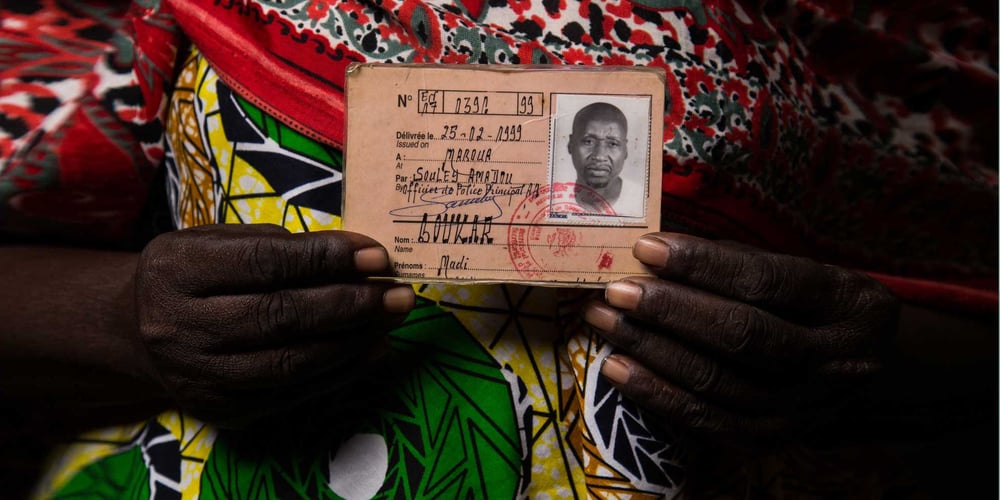 N° 0390 99
Délivrée le 25-02-1999
Issued on
A : MAROUA
At
Par : SOULEY AMADOU
By Officier de Police Principal
Nom : GOUKAR
Name
Prénoms : Madi
Surnames